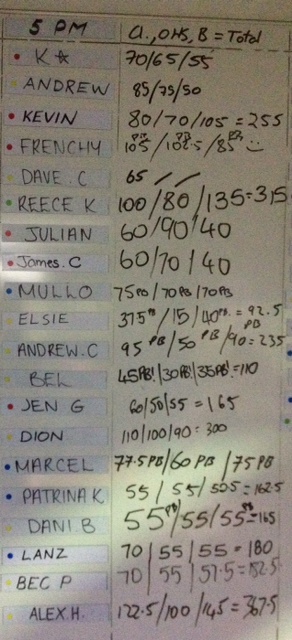 5 PM CL., OHS, B = Total
K☆ 70/65/55
ANDREW 85/75/50
KEVIN 80/70/105 = 255
FRENCHY 105 PB/102.5 PB/85 PB :)
DAVE.C 65 / /
REECE K 100/80/135=315
JULIAN 60/90/40
James.C 60/70/40
MULLO 75PB/70PB/70PB
ELSIE 37.5PB/15/40PB = 92.5
ANDREW.C 95 PB/50 PB/90 PB = 235
BEL 45PB!/30PB!/35PB!=110
JEN G 60/50/55 = 165
DION 110/100/90 = 300
MARCEL 77.5PB/60 PB/75PB
PATRINA K 55/55/52.5 = 162.5
DANI B 55PB/55/55PB=165
LANZ 70/55/55 = 180
BEC P 70/55/57.5=182.5
ALEX.H. 122.5/100/145=367.5